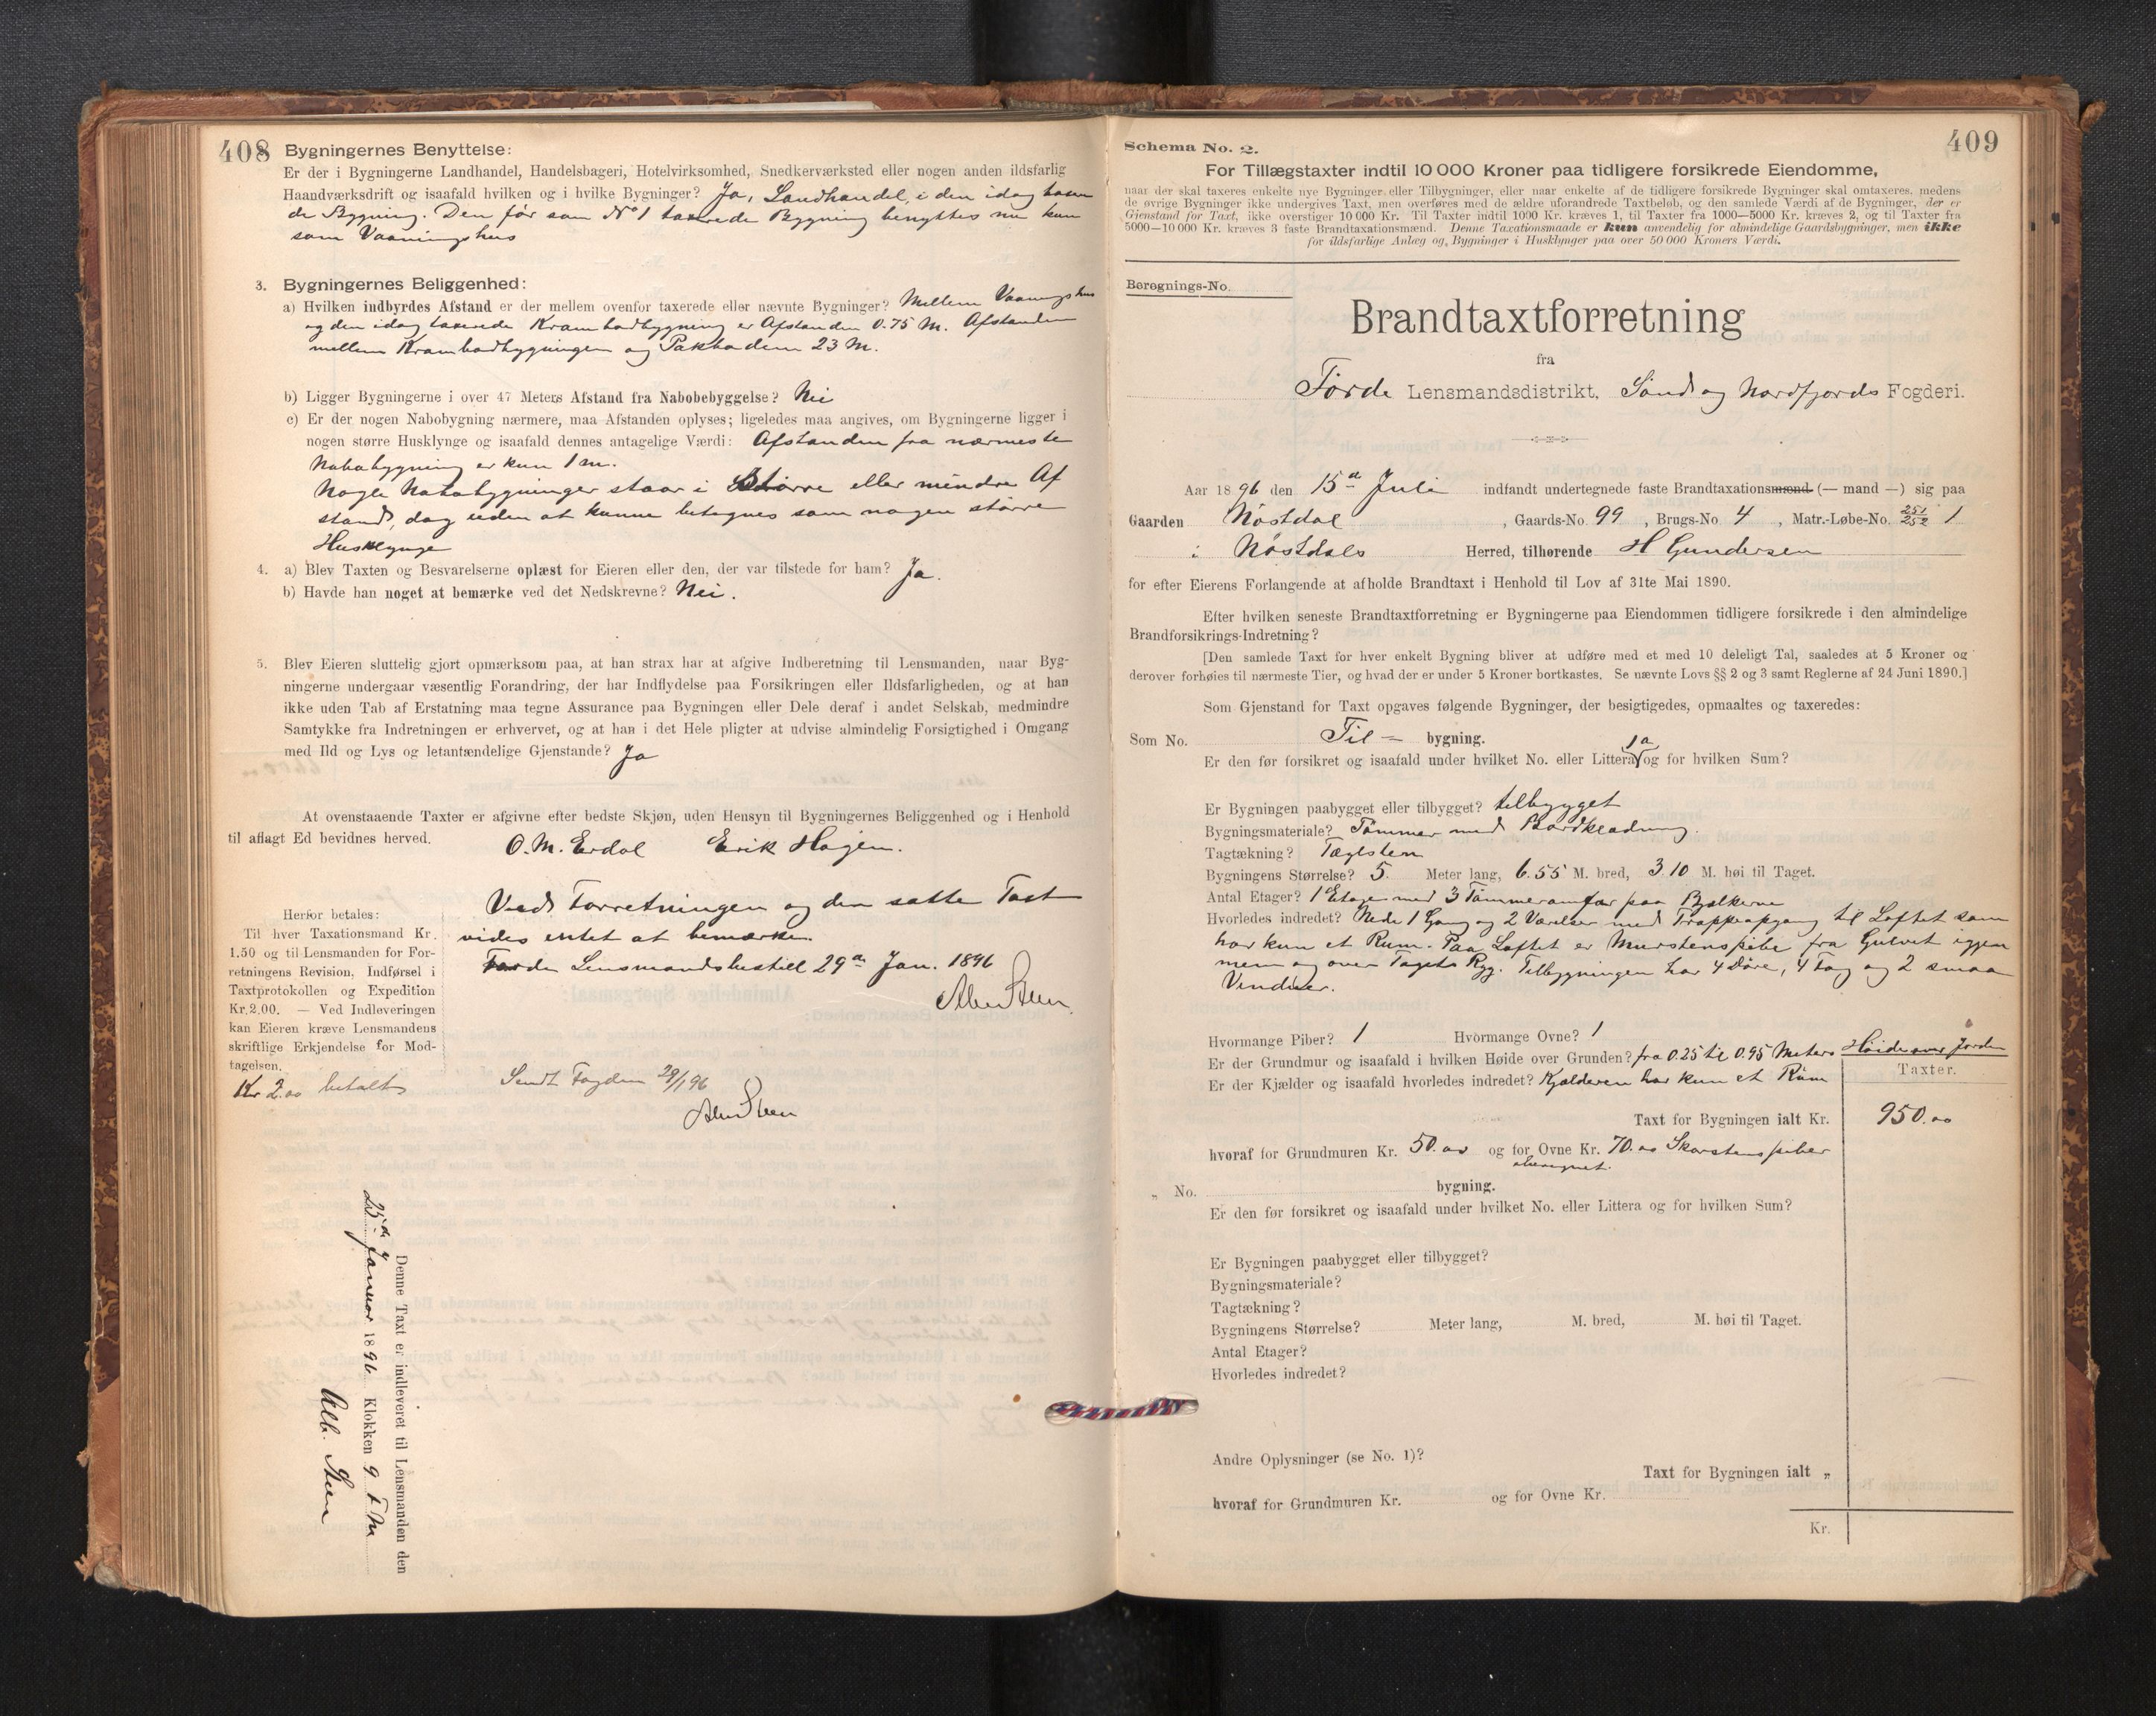 408
Bygningernes Benyttelse:
Er der i Bygningerne Landhandel, Handelsbageri, Hotelvirksomhed, Snedkerværksted eller nogen anden ildsfarlig
Haandværksdrift og isaafald hvilken og i hvilke Bygninger? Ja, Landhandel, i den idag taxe
de Bygning. Den før som No 1 taxerede Bygning benyttes nu kun
som Vaaningshus
3. Bygningernes Beliggenhed:
a) Hvilken indbyrdes Afstand er der mellem ovenfor taxerede eller nævnte Bygninger? Mellem Vaaningshus
og den idag taxerede Krambodbygning er Afstanden 0.75 M. Afstanden
mellem Krambodbygningen og Pakboden 23 M.
b) Ligger Bygningerne i over 47 Meters Afstand fra Nabobebyggelse? Nei
c) Er der nogen Nabobygning nærmere, maa Afstanden oplyses; ligeledes maa angives, om Bygningerne ligger i
nogen større Husklynge og isaafald dennes antagelige Værdi: Afstanden fra nærmeste
Nabobygning er kun 1 m.
Nogle Nabobygninger staar i Større eller mindre Af
stand, dog uden at kunne betegnes som nogen større
Husklynge
4. a) Blev Taxten og Besvarelserne oplæst for Eieren eller den, der var tilstede for ham? Ja.
b) Havde han noget at bemærke ved det Nedskrevne? Nei.
5. Blev Eieren sluttelig gjort opmærksom paa, at han strax har at afgive Indberetning til Lensmanden, naar Byg-
ningerne undergaar væsentlig Forandring, der har Indflydelse paa Forsikringen eller Ildsfarligheden, og at han
ikke uden Tab af Erstatning maa tegne Assurance paa Bygningen eller Dele deraf i andet Selskab, medmindre
Samtykke fra Indretningen er erhvervet, og at han i det Hele pligter at udvise almindelig Forsigtighed i Omgang
med Ild og Lys og letantændelige Gjenstande? Ja
At ovenstaaende Taxter er afgivne efter bedste Skjøn, uden Hensyn til Bygningernes Beliggenhed og i Henhold
til aflagt Ed bevidnes herved.
O. M. Erdal Erik Hagen.
Ved Forretningen og den satte Taxt
vides intet at bemærke.
Førde Lensmandsbestill 29de Jan. 1896
Alb Steen
Herfor betales:
Til hver Taxationsmand Kr.
1.50 og til Lensmanden for For-
retningens Revision, Indførsel i
Taxtprotokollen og Expedition
Kr. 2.00. — Ved Indleveringen
kan Eieren kræve Lensmandens
skriftlige Erkjendelse for Mod-
tagelsen.
Kr 2.00 betalt
Sendt Fogden 29/1 96
Alb Steen
Denne Taxt er indleveret til Lensmanden den
25de Januar 1896 Klokken 9 F M
Alb. Steen
409
Schema No. 2.
For Tillægstaxter indtil 10 000 Kroner paa tidligere forsikrede Eiendomme,
naar der skal taxeres enkelte nye Bygninger eller Tilbygninger, eller naar enkelte af de tidligere forsikrede Bygninger skal omtaxeres, medens
de øvrige Bygninger ikke undergives Taxt, men overføres med de ældre uforandrede Taxtbeløb, og den samlede Værdi af de Bygninger, der er
Gjenstand for Taxt, ikke overstiger 10 000 Kr. Til Taxter indtil 1000 Kr. kræves 1, til Taxter fra 1000—5000 Kr. kræves 2, og til Taxter fra
5000—10 000 Kr. kræves 3 faste Brandtaxationsmænd. Denne Taxationsmaade er kun anvendelig for almindelige Gaardsbygninger, men ikke
for ildsfarlige Anlæg og Bygninger i Husklynger paa over 50 000 Kroners Værdi.
Beregnings-No.
Brandtaxtforretning
fra
Førde Lensmandsdistrikt, Sønd og Nordfjords Fogderi.
Aar 1896 den 15de Juli indfandt undertegnede faste Brandtaxationsmænd (— mand —) sig paa
Gaarden Nøstdal, Gaards-No. 99, Brugs-No. 4, Matr.-Løbe-No. 251/252 1
i Nøstdals Herred, tilhørende H Gundersen
for efter Eierens Forlangende at afholde Brandtaxt i Henhold til Lov af 31te Mai 1890.
Efter hvilken seneste Brandtaxtforretning er Bygningerne paa Eiendommen tidligere forsikrede i den almindelige
Brandforsikrings-Indretning?
[Den samlede Taxt for hver enkelt Bygning bliver at udføre med et med 10 deleligt Tal, saaledes at 5 Kroner og
derover forhøies til nærmeste Tier, og hvad der er under 5 Kroner bortkastes. Se nævnte Lovs §§ 2 og 3 samt Reglerne af 24 Juni 1890.]
Som Gjenstand for Taxt opgaves følgende Bygninger, der besigtigedes, opmaaltes og taxeredes:
Som No. Til- bygning.
Er den før forsikret og isaafald under hvilket No. eller Littera 1a og for hvilken Sum?
Er Bygningen paabygget eller tilbygget? tilbygget
Bygningsmateriale? Tømmer med Bordklædning.
Tagtækning? Tæglsten
Bygningens Størrelse? 5. Meter lang, 6.55 M. bred, 3.10 M. høi til Taget.
Antal Etager? 1 Etage med 3 Tømmeromfar paa Bjelkerne
Hvorledes indredet? Nede 1 Gang og 2 Værelser med Trappeopgang til Loftet som
har kun et Rum. Paa Loftet er Murstenspibe fra Gulvet igjen
nem og over Tagets Ryg. Tilbygningen har 4 Døre, 4 Fag og 2 smaa
Vinduer.
Hvormange Piber? 1 Hvormange Ovne? 1
Er der Grundmur og isaafald i hvilken Høide over Grunden? fra 0.25 til 0.95 Meters Høide over Jorden
Er der Kjælder og isaafald hvorledes indredet? Kjælderen har kun et Rum
Taxter.
Taxt for Bygningen ialt Kr. 950.00
hvoraf for Grundmuren Kr. 50.00 og for Ovne Kr. 70.00 Skorstenspiber
iberegnet.
„ No. bygning.
Er den før forsikret og isaafald under hvilket No. eller Littera og for hvilken Sum?
Er Bygningen paabygget eller tilbygget?
Bygningsmateriale?
Tagtækning?
Bygningens Størrelse? Meter lang, M. bred, M. høi til Taget.
Antal Etager?
Hvorledes indredet?
Andre Oplysninger (se No. 1)?
Taxt for Bygningen ialt „
hvoraf for Grundmuren Kr. og for Ovne Kr.
Kr.